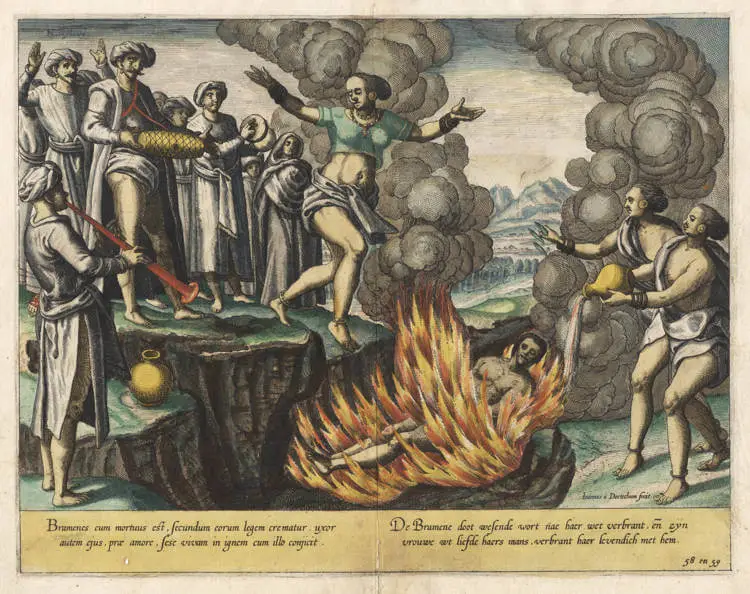 Brumenes cum mortuus est, secundum eorum legem crematur, uxor
autem ejus, præ amore, sese vivam in ignem cum illo conjicit.
De Brumene doot wesende wort nae haer wet verbrant, en̄ zyn
vrouwe wt liefde haers mans, verbrant haer levendich met hem.
Ioannes à Doetechum fecit.
58 en 59